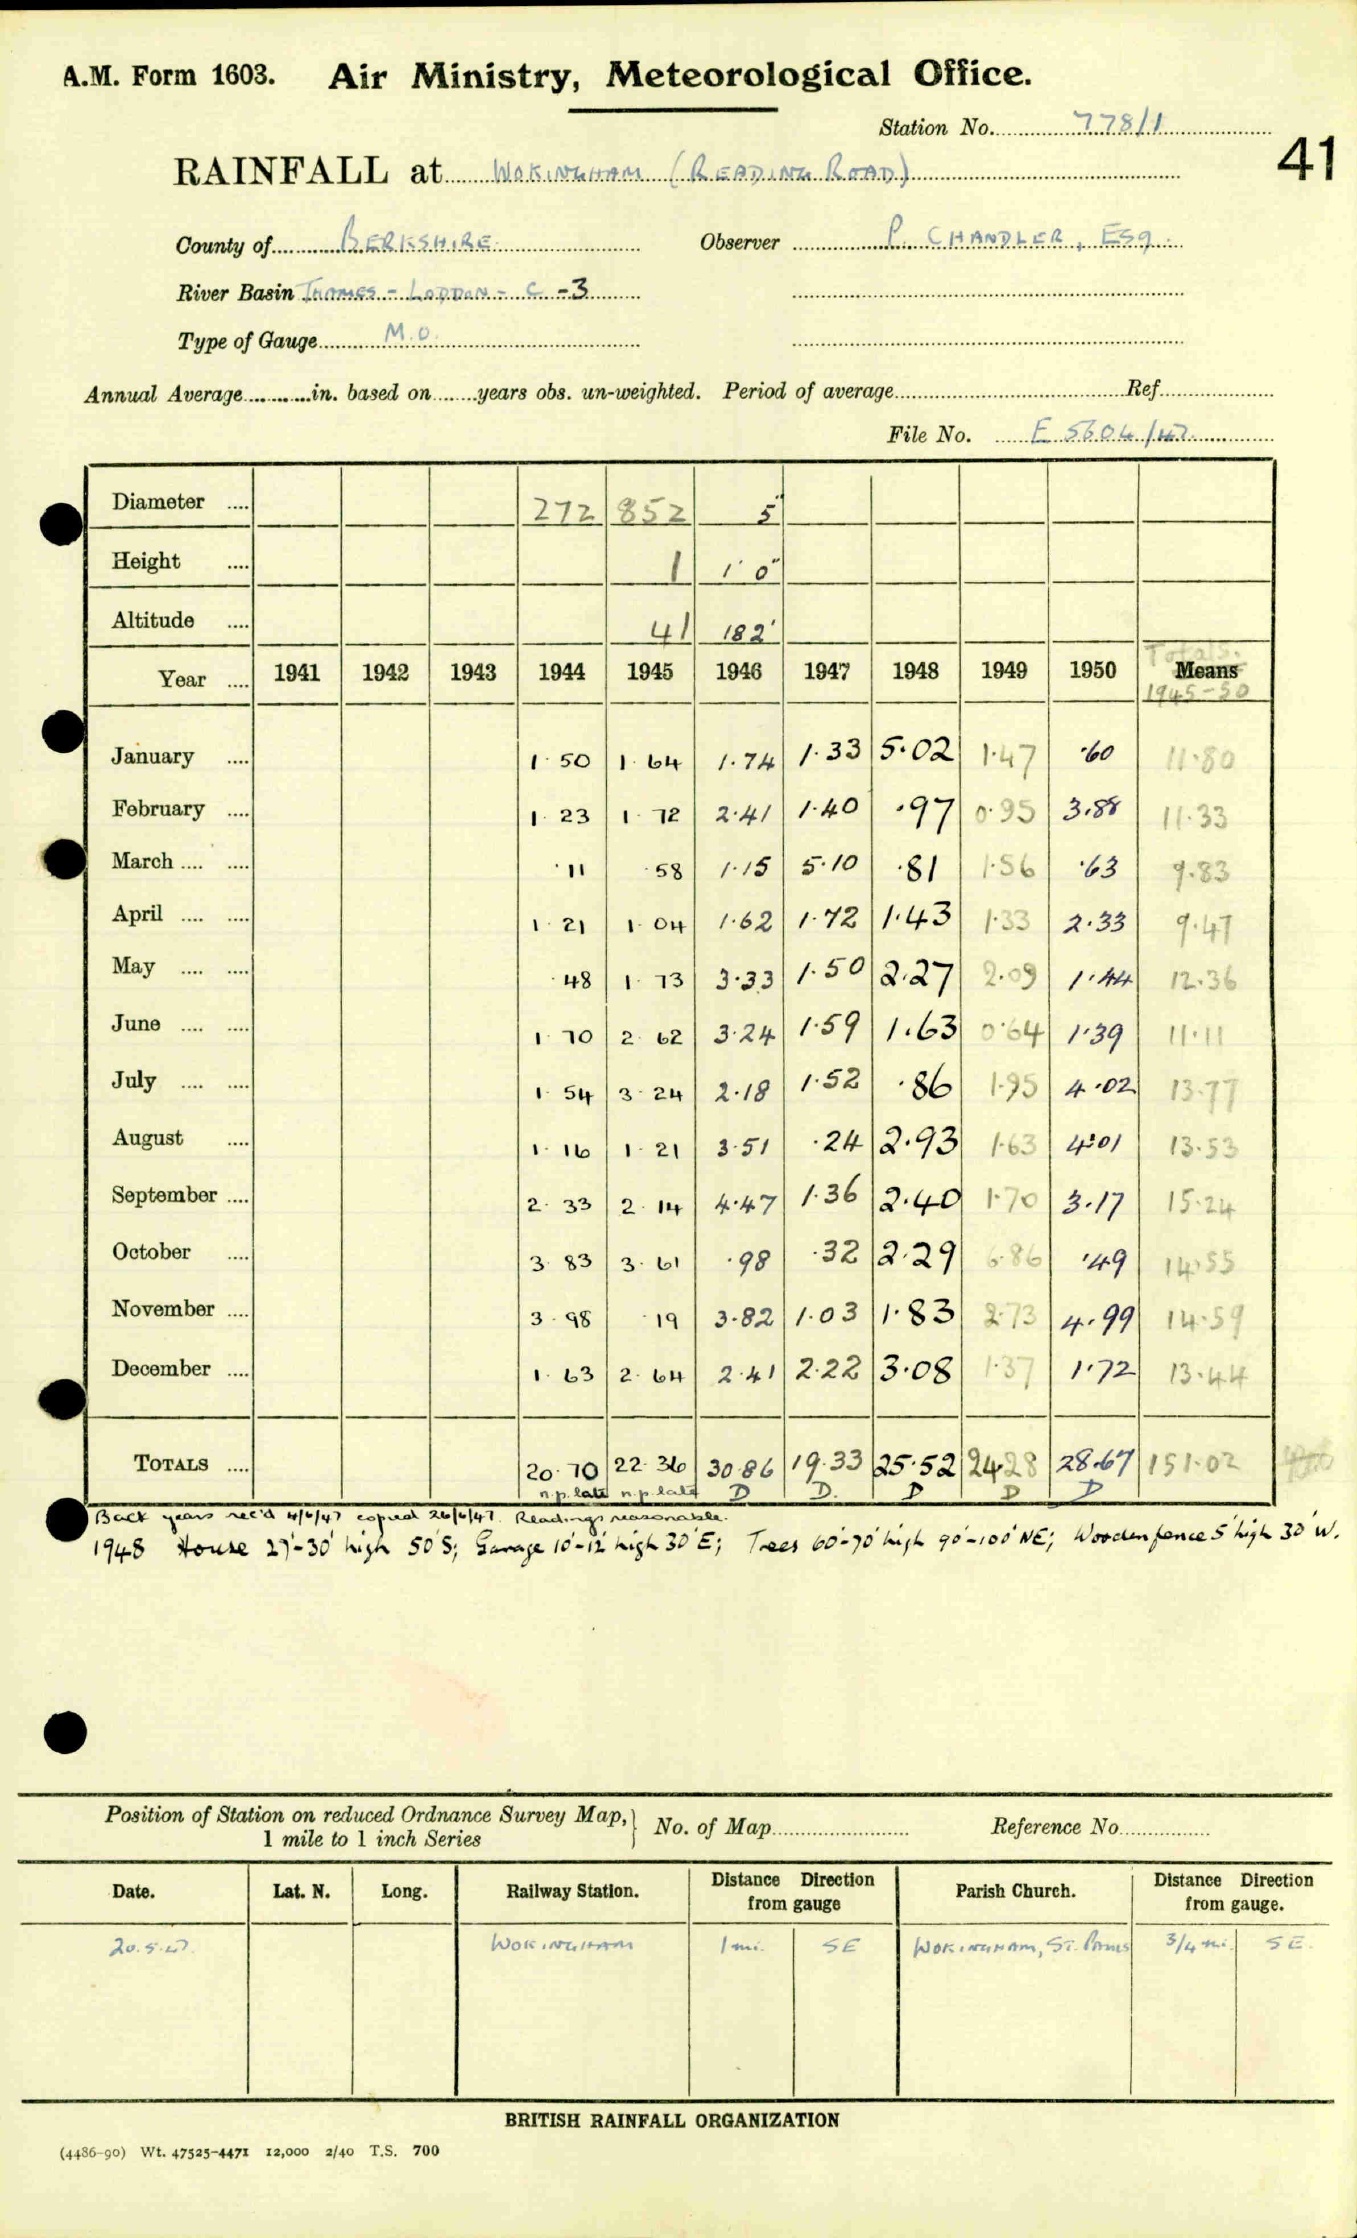 A.M. Form 1603. Air Ministry, Meteorological Office.
Station No. 778/1
41
RAINFALL at WOKINGHAM (READING ROAD)
County of BERKSHIRE Observer P. CHANDLER, ESQ.
River Basin THAMES - LODDON - C -3
Type of Gauge M.O.
Annual Average in. based on years obs. un-weighted. Period of average Ref.
File No. E 5604/47
Diameter 272 852 5"
Height 1 1' 0"
Altitude 41 182'
Totals.
Year 1941 1942 1943 1944 1945 1946 1947 1948 1949 1950 Means
1945-50
January 1.50 1.64 1.74 1.33 5.02 1.47 .60 11.80
February 1.23 1.72 2.41 1.40 .97 0.95 3.88 11.33
March .11 .58 1.15 5.10 .81 1.56 .63 9.83
April 1.21 1.04 1.62 1.72 1.43 1.33 2.33 9.47
May .48 1.73 3.33 1.50 2.27 2.09 1.44 12.36
June 1.70 2.62 3.24 1.59 1.63 0.64 1.39 11.11
July 1.54 3.24 2.18 1.52 .86 1.95 4.02 13.77
August 1.16 1.21 3.51 .24 2.93 1.63 4.01 13.53
September 2.33 2.14 4.47 1.36 2.40 1.70 3.17 15.24
October 3.83 3.61 .98 .32 2.29 6.86 .49 14.55
November 3.98 .19 3.82 1.03 1.83 2.73 4.99 14.59
December 1.63 2.64 2.41 2.22 3.08 1.37 1.72 13.44
TOTALS 20.70 22.36 30.86 19.33 25.52 24.28 28.67 151.02
n.p. late n.p. late D D. D D D
Back years rec'd 4/6/47 copied 26/6/47. Readings reasonable.
1948 House 27'-30' high 50'S; Garage 10'-12' high 30'E; Trees 60'-70' high 90'-100' NE; Wooden fence 5' high 30' W.
Position of Station on reduced Ordnance Survey Map, } No. of Map Reference No.
1 mile to 1 inch Series
Date. Lat. N. Long. Railway Station. Distance Direction from gauge Parish Church. Distance Direction from gauge.
20.5.47. WOKINGHAM 1 mi. SE WOKINGHAM, ST. PAULS 3/4 mi. SE.
BRITISH RAINFALL ORGANIZATION
(4486-90) Wt. 47525-4471 12,000 2/40 T.S. 700